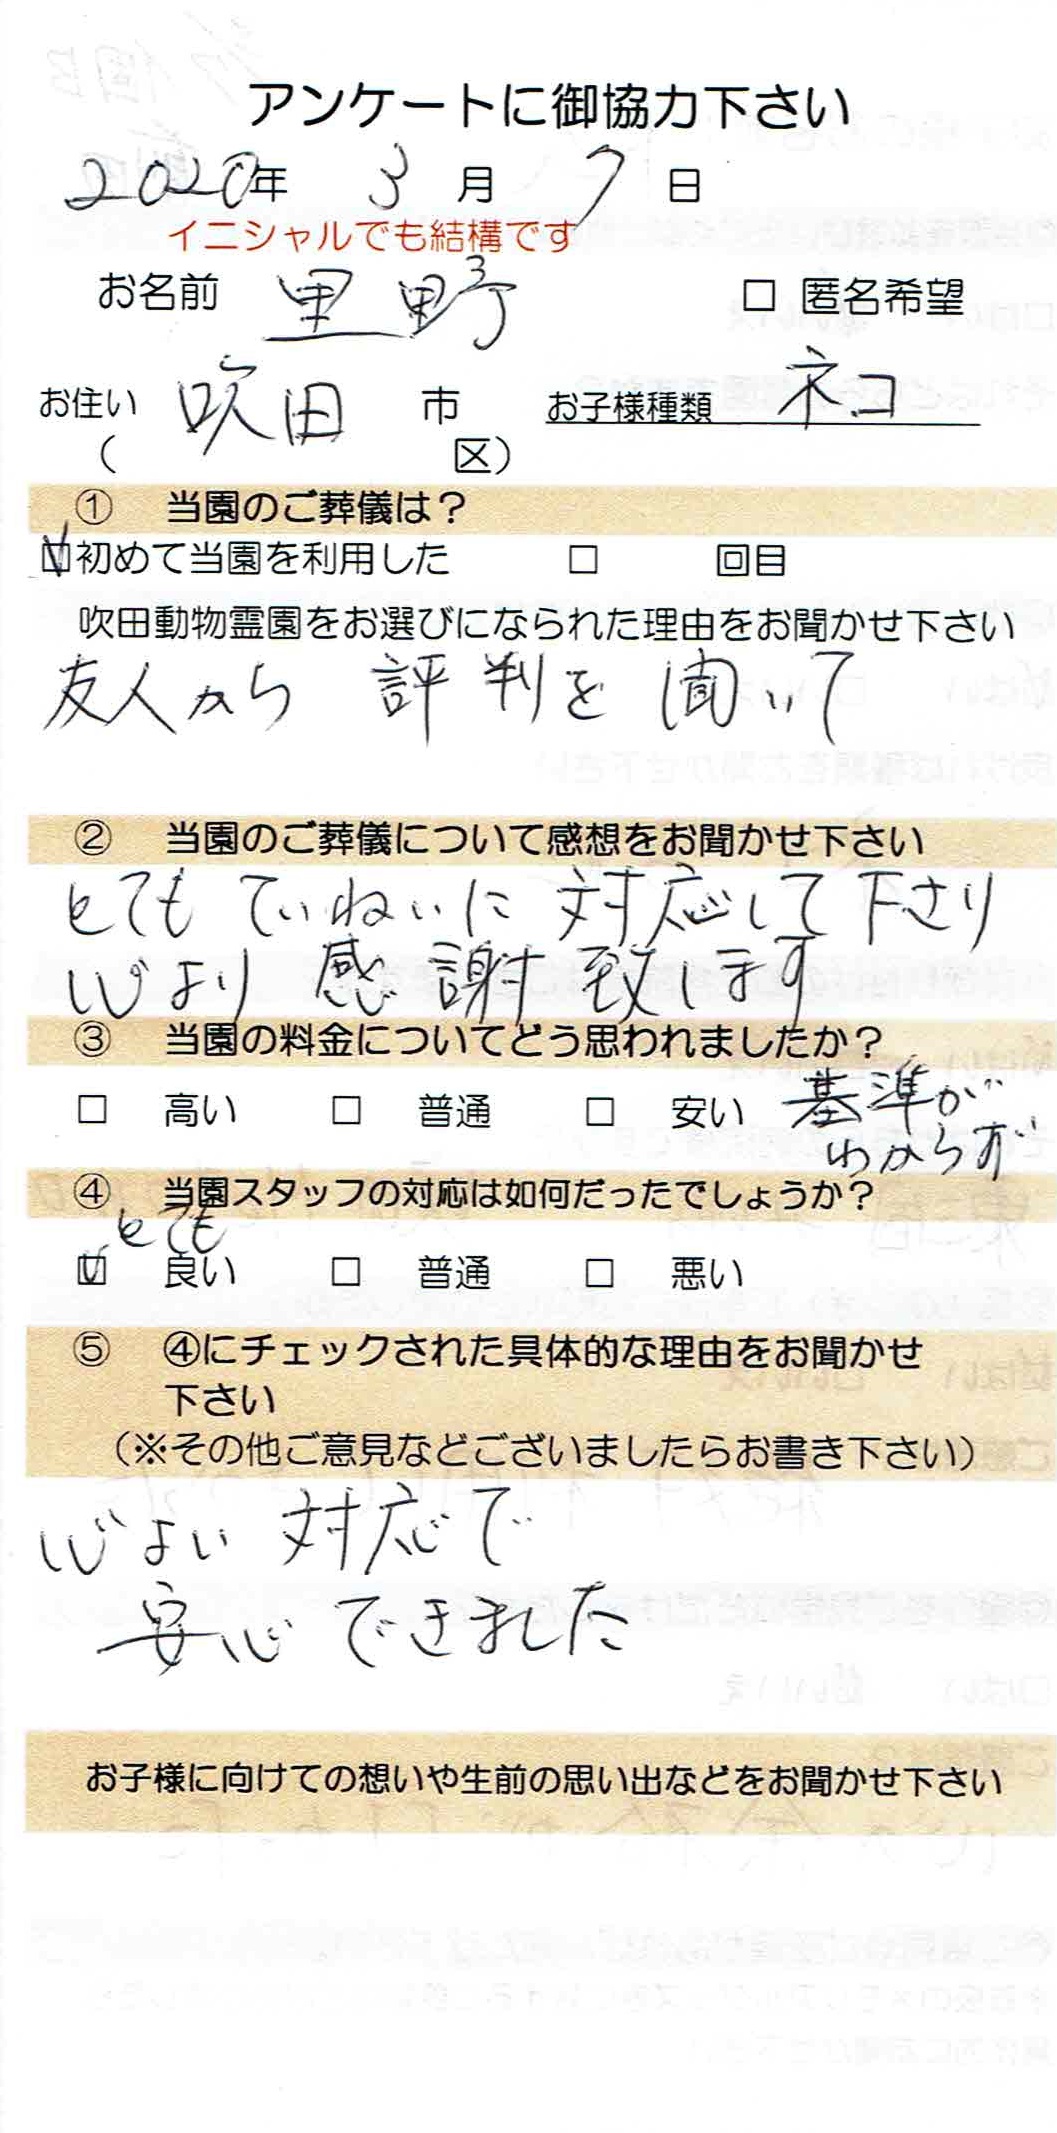 アンケートに御協力下さい
2020年 3月 7日
イニシャルでも結構です
お名前 里野 □ 匿名希望
お住い 吹田 市 お子様種類 ネコ
( 区)
① 当園のご葬儀は?
☑初めて当園を利用した □ 回目
吹田動物霊園をお選びになられた理由をお聞かせ下さい
友人から 評判を聞いて
② 当園のご葬儀について感想をお聞かせ下さい
とても ていねいに 対応して下さり
心より 感謝致します
③ 当園の料金についてどう思われましたか?
□ 高い □ 普通 □ 安い 基準が
わからず
④ 当園スタッフの対応は如何だったでしょうか?
とても
☑ 良い □ 普通 □ 悪い
⑤ ④にチェックされた具体的な理由をお聞かせ
下さい
(※その他ご意見などございましたらお書き下さい)
心よい 対応で
安心できました
お子様に向けての想いや生前の思い出などをお聞かせ下さい